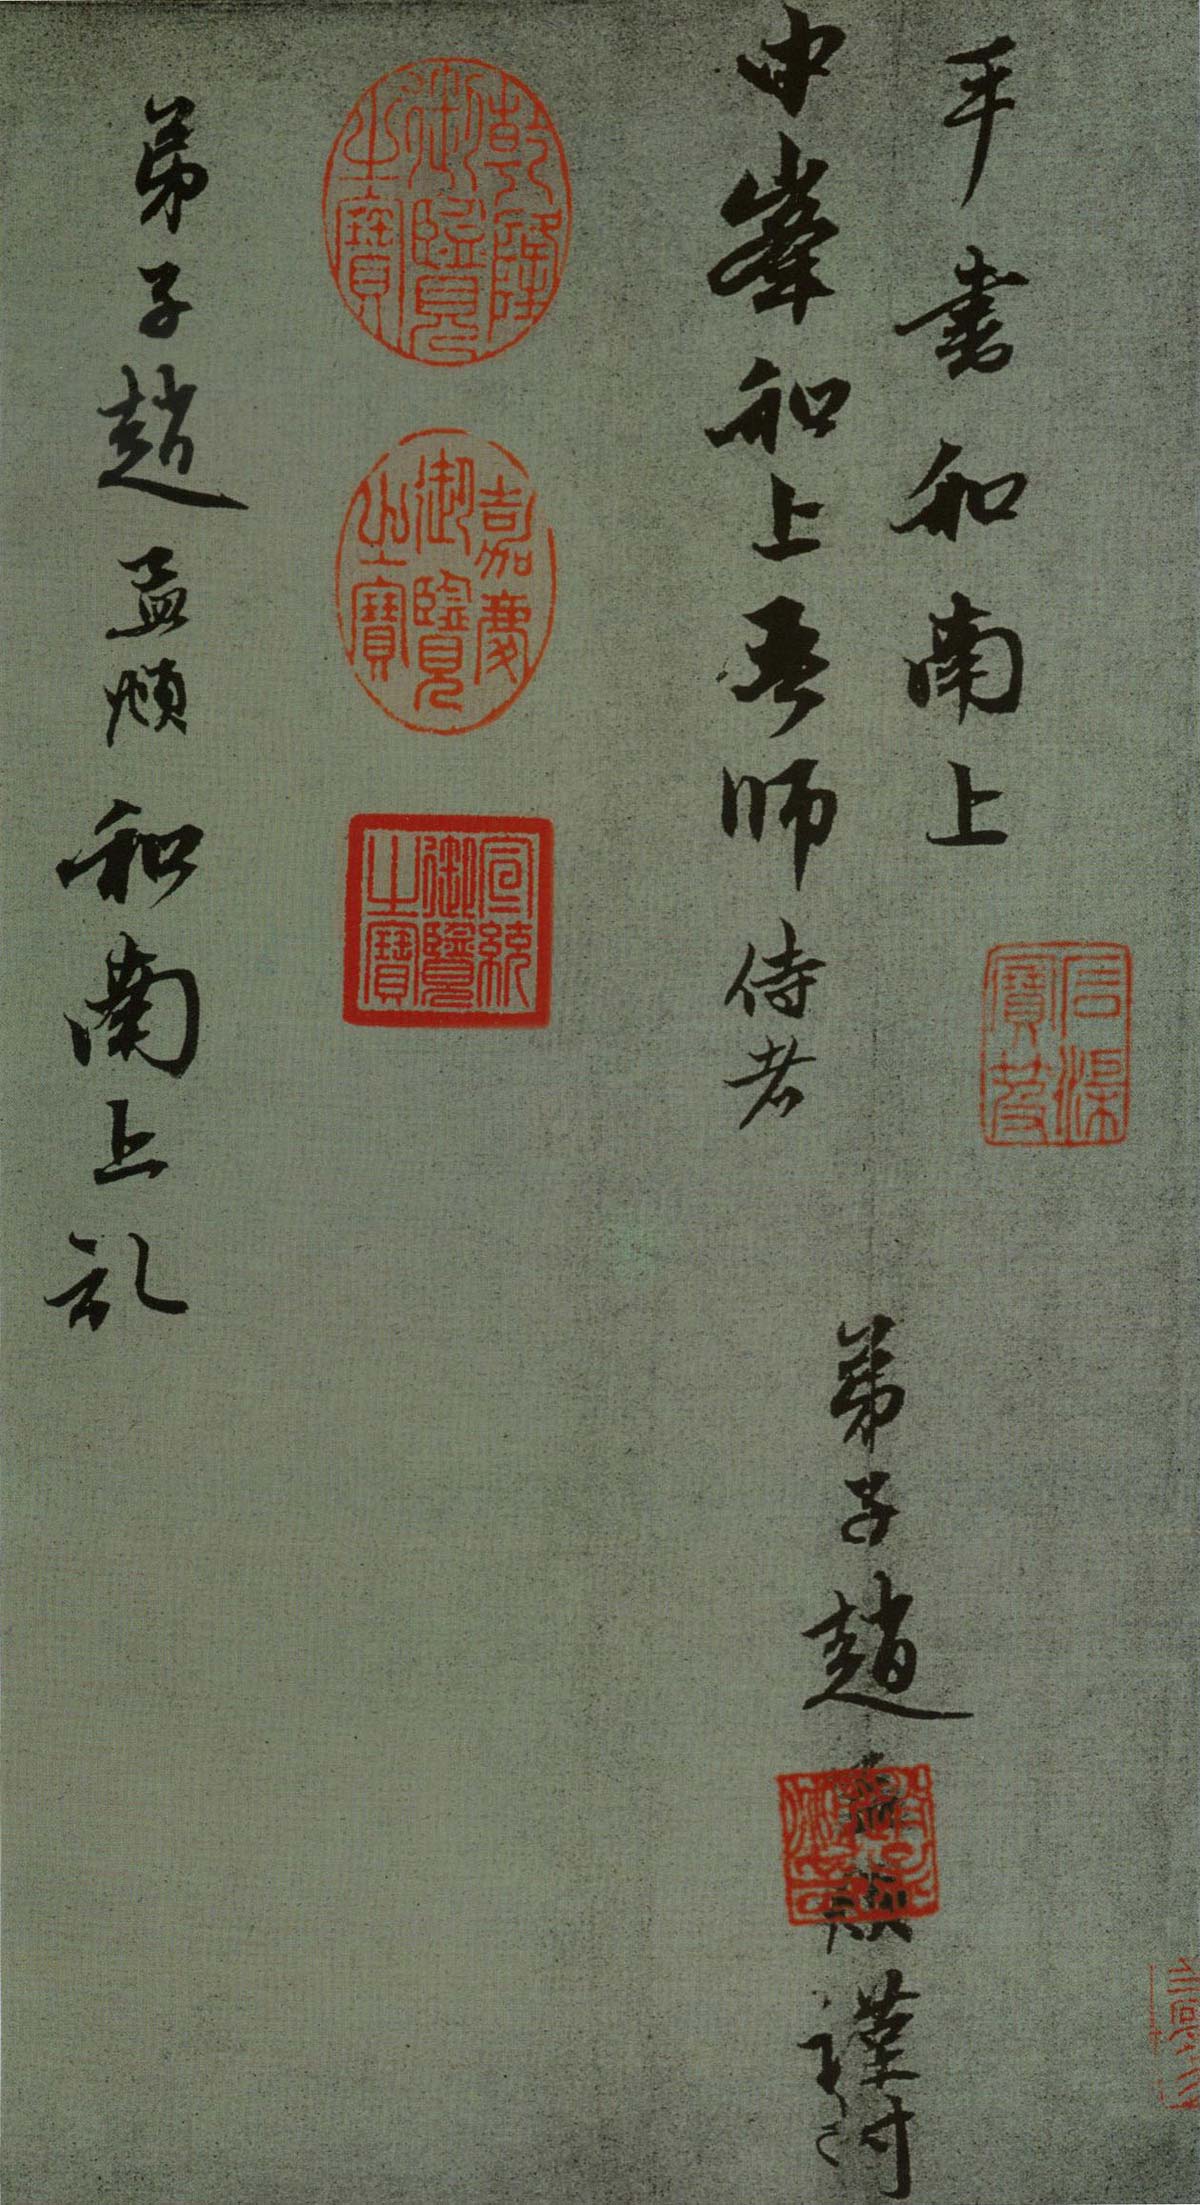 手書和南上
石渠寶笈
中峯和上吾師侍者
弟子趙孟頫謹封
趙氏子昂
乾隆御覽之寶
嘉慶御覽之寶
宣統御覽之寶
弟子趙孟頫和南上礼